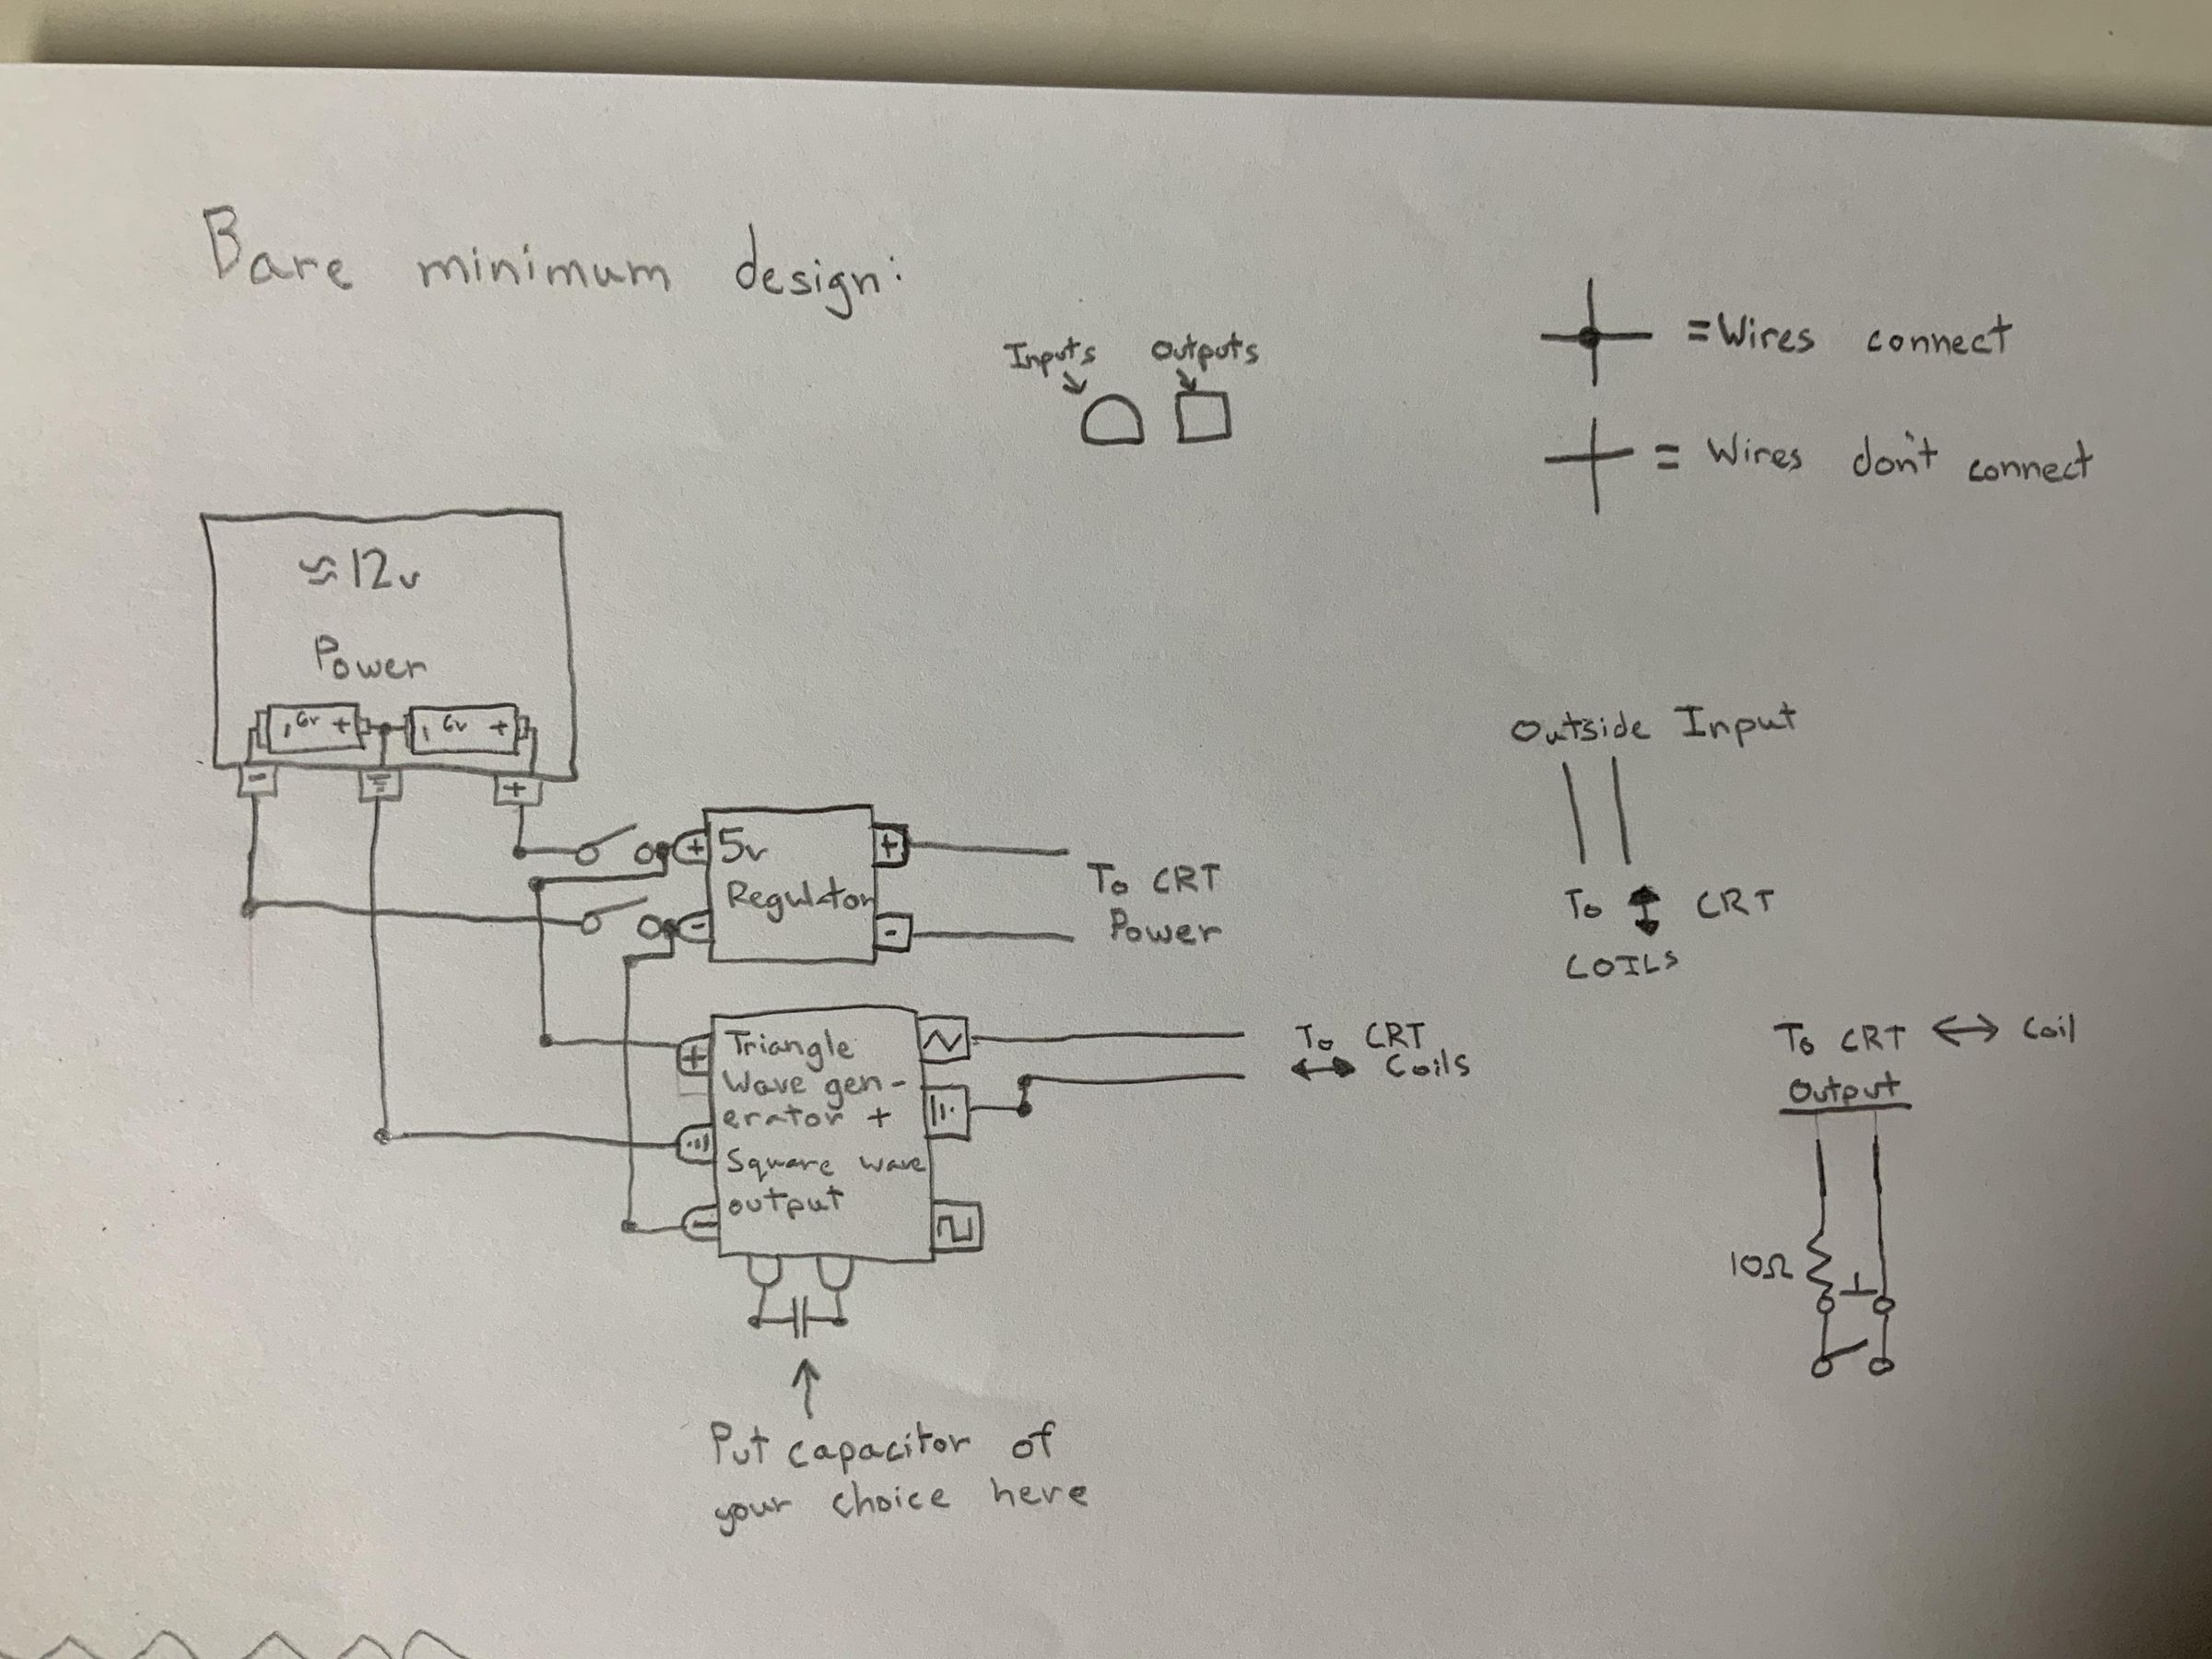 Bare minimum design:
Inputs
Outputs
=Wires connect
= Wires don't connect
≈12v
Power
6v +
6v +
-
+
+
5v
Regulator
-
+
-
To CRT
Power
Outside Input
To ↕ CRT
COILS
+
Triangle
Wave gen-
erator +
Square wave
output
-
To CRT
↔ Coils
To CRT ↔ Coil
Output
10Ω
Put capacitor of
your choice here